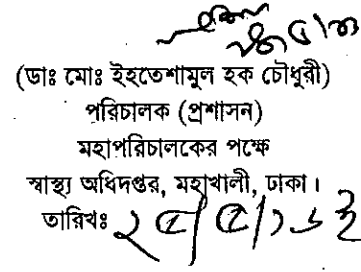 (ডাঃ মোঃ ইহতেশামুল হক চৌধুরী)
পরিচালক (প্রশাসন)
মহাপরিচালকের পক্ষে
স্বাস্থ্য অধিদপ্তর, মহাখালী, ঢাকা।
তারিখঃ